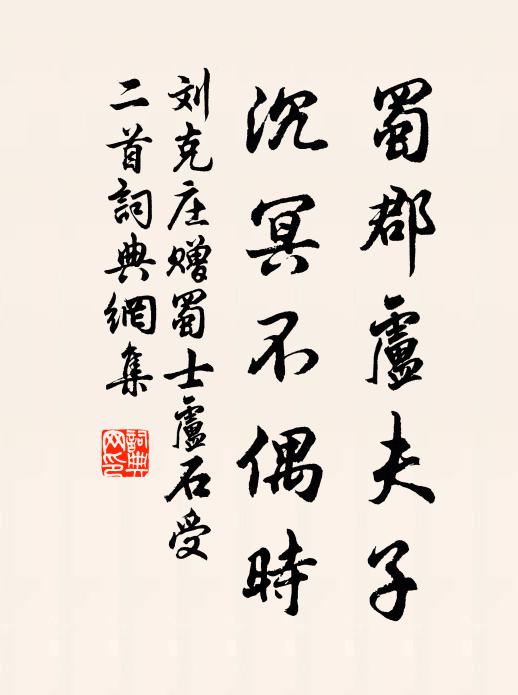 蜀郡盧夫子
沉冥不偶時
刘克庄赠蜀士盧石受
二首詞典網集
詞典网印